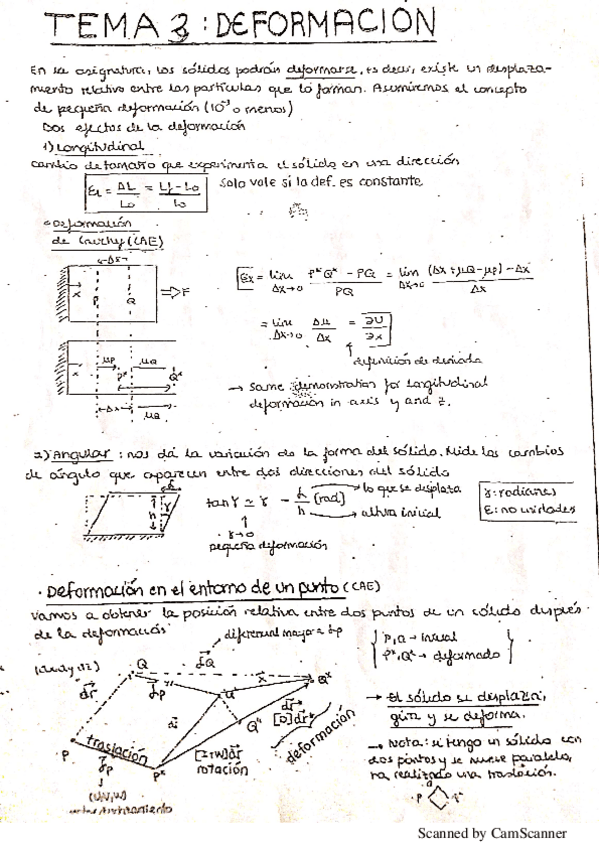 TEMA 3: DEFORMACIÓN
En la asignatura, los sólidos podrán deformarse, es decir, existe un desplaza-
miento relativo entre las partículas que lo forman. Asumiremos el concepto
de pequeña deformación (10⁻³ o menos)
Dos efectos de la deformación
1) Longitudinal
cambio de tamaño que experimenta el sólido en una dirección
εL = ΔL/Lo = (Lf - Lo)/Lo   Solo vale si la def. es constante
Deformación
de Cauchy (CAE)
Δx
x P Q F
εx = lim Δx→0 (P*Q* - PQ)/PQ = lim Δx→0 ((Δx + μQ - μP) - Δx)/Δx
= lim Δx→0 Δμ/Δx = ∂U/∂x
definición de derivada
x μP P* μQ Q*
Δx μQ
→ same demonstration for longitudinal
deformation in axis y and z.
2) Angular: nos da la variación de la forma del sólido. Mide los cambios
de ángulo que aparecen entre dos direcciones del sólido
h γ
tan γ ≃ γ
(rad)
→ lo que se desplaza
→ altura inicial
γ→0
pequeña deformación
γ: radianes
ε: no unidades
· Deformación en el entorno de un punto (CAE)
Vamos a obtener la posición relativa entre dos puntos de un sólido después
de la deformación
diferencial mayor a δp
P, Q → inicial
P*, Q* → deformado
Q δQ Q*
dr δp x
u
Q"
[D]dr
deformación
P traslación P*
δp
dr
rotación
→ El sólido se desplaza,
gira y se deforma.
→ Nota: si tengo un sólido con
dos puntos y se mueve paralelo,
ha realizado una traslación.
P
Scanned by CamScanner